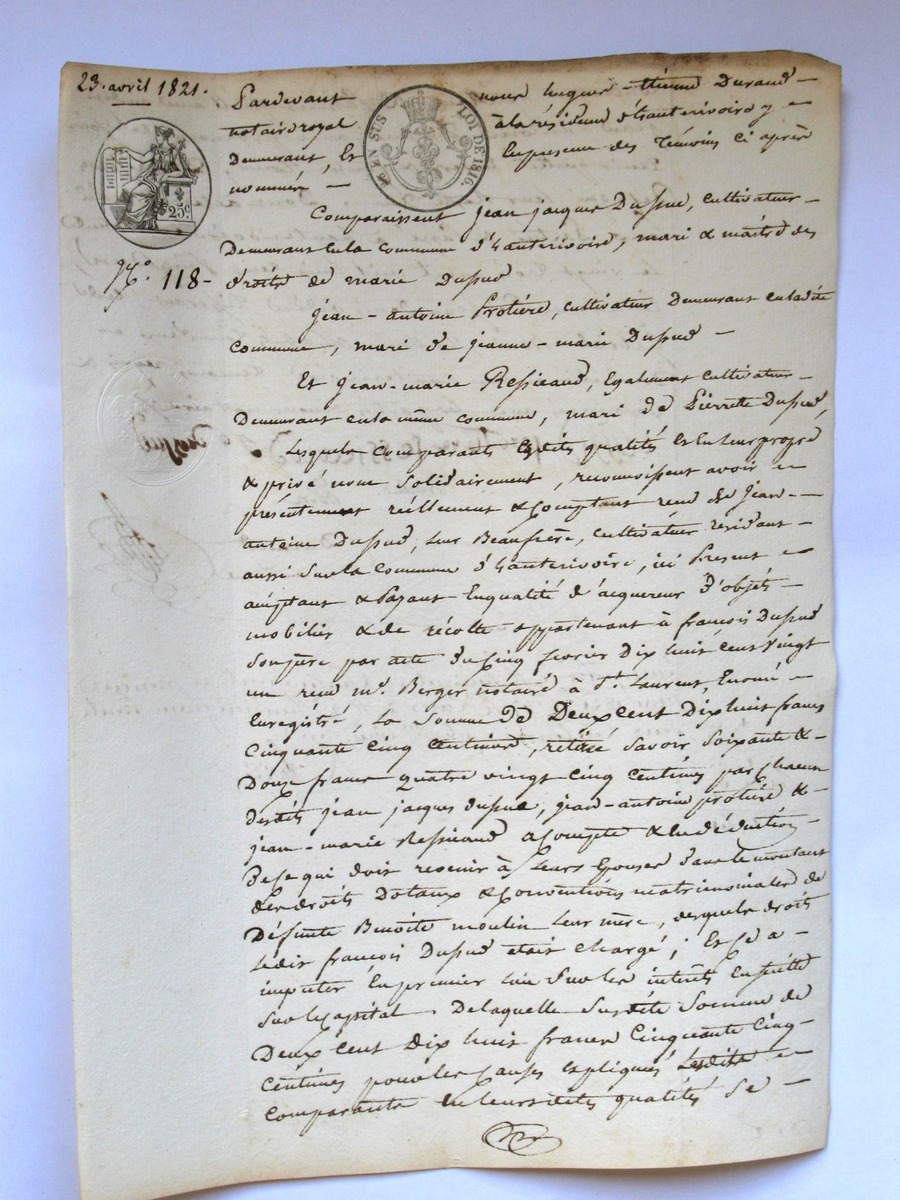 23. avril 1821.
Pardevant nous hugues-étienne Durand
notaire royal à la résidence d'hauterivoire y
Demeurant, Et En presence des Témoins ci après
nommés
EN SUS
LOI DE 1816.
25c
N.º 118
Comparaissent jean jacques Dupué, cultivateur
Demeurant En la commune d'hauterivoire, mari & maître des
droits de marie Dupué
jean-antoine Protière, cultivateur Demeurant en ladite
commune, mari de jeanne-marie Dupué
Et jean-marie Ressicaud, Egalement cultivateur
Demeurant en la même commune, mari de Pierrette Dupué,
Lesquels comparants Esdits qualités et En leur propre
& privé nom Solidairement, reconnoissent avoir
présentement réellement & Comptant reçu de jean
antoine Dupué, leur Beaufrère, cultivateur résidant
aussi Sur la commune d'hauterivoire, ici Présent
acceptant & Payant En qualité d'acquereur d'objets
mobilier & de récolte appartenant à françois Dupué
Son père par acte du Cinq fevrier Dix huit cent Vingt
un reçu mᵉ. Berger notaire à Sᵗ. Laurent,
Enregistré, La Somme de Deux cent Dix huit francs
Cinquante Cinq Centimes, savoir Soixante &
Douze francs quatre vingt Cinq centimes par Chacun
desdits jean jacques dupué, jean-antoine protière &
jean-marie Ressicaud acompte & En déduction
De Ce qui doit revenir à Leurs Epouses Dans le montant
des droits Dotaux & Conventions matrimoniales de
Défunte Benoite moulin Leur mère, desquels droits
Ledit françois Dupué était Chargé; Et Ce a
imputer En premier lieu Sur les intérêts Ensuitte
Sur le Capital. De laquelle Susdite Somme de
Deux Cent Dix huit francs Cinquante Cinq
Centimes pour les Causes Expliquées Lesdits
Comparants En leursdites qualités Se